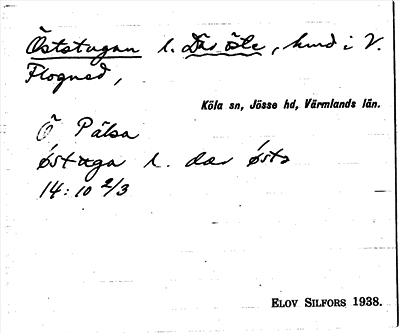 Öststugan l. Där öste, hmd i V.
Flogned,
Köla sn, Jösse hd, Värmlands län.
Ö Pälsa
l. dar
14:10 2/3
ELOV SILFORS 1938.